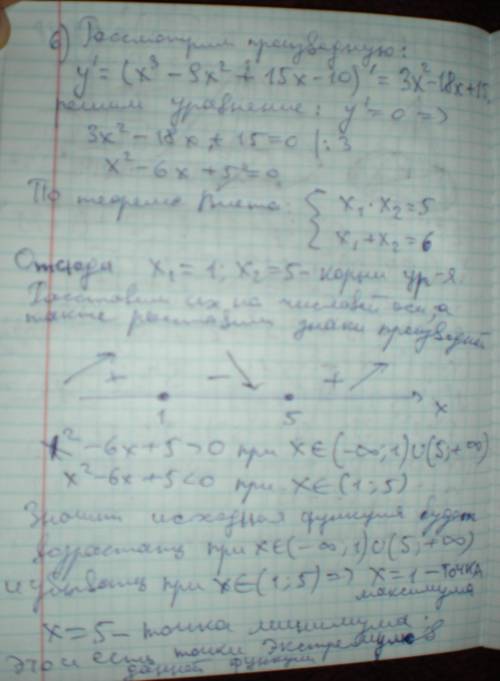 б) Рассмотрим производную:
y' = (x³ - 9x² + 15x - 10)' = 3x² - 18x + 15,
решим уравнение: y' = 0 =>
3x² - 18x + 15 = 0 |:3
x² - 6x + 5 = 0
По теореме Виета: { x₁ · x₂ = 5
x₁ + x₂ = 6
Отсюда x₁ = 1; x₂ = 5 - корни ур-я.
Расставим их на числовой оси, а
также расставим знаки производной
+ - +
1 5 x
x² - 6x + 5 > 0 при x ∈ (-∞; 1) ∪ (5; +∞)
x² - 6x + 5 < 0 при x ∈ (1; 5)
Значит исходная функция будет
возрастать при x ∈ (-∞; 1) ∪ (5; +∞)
и убывать при x ∈ (1; 5) => x = 1 - точка
максимума
x = 5 - точка минимума.
Это и есть точки экстремумов
данной функции